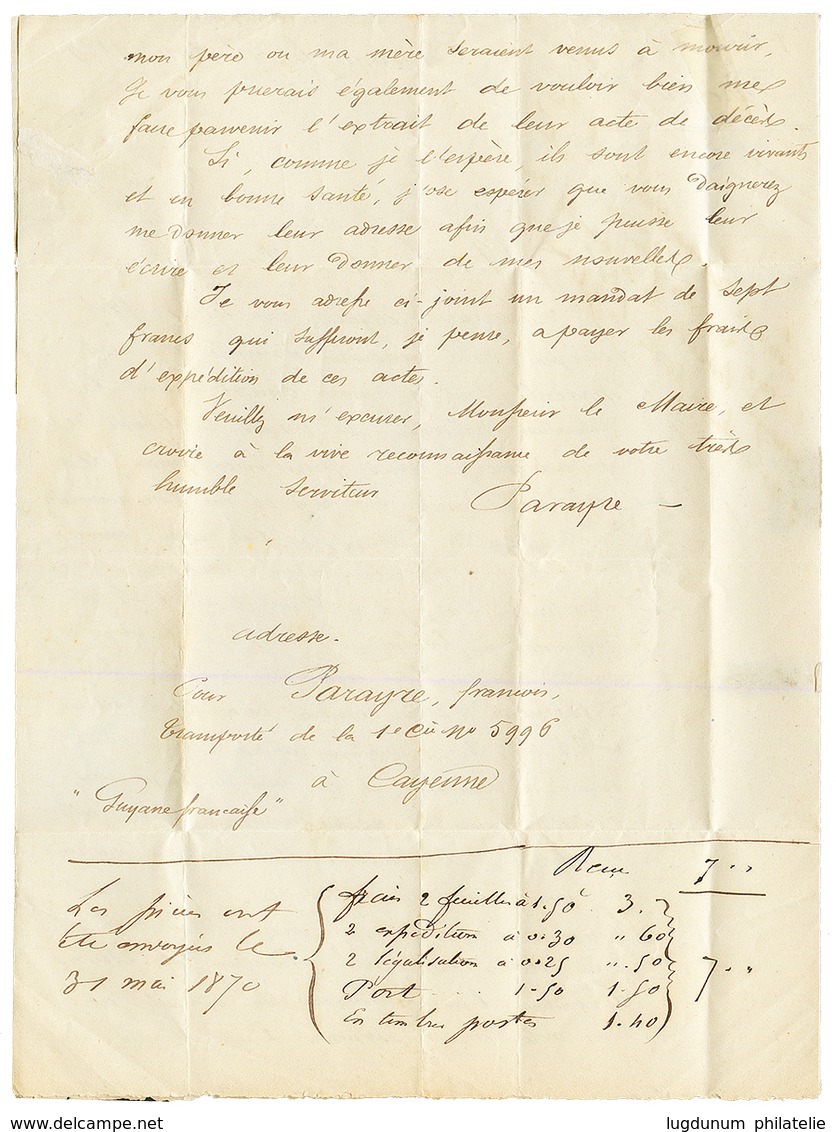 mon père ou ma mère seraient venus à mourir,
Je vous prierais également de vouloir bien me
faire parvenir l'extrait de leur acte de décès.
Si, comme je l'espère, ils sont encore vivants
et en bonne santé, j'ose espérer que vous daignerez
me donner leur adresse afin que je puisse leur
écrire et leur donner de mes nouvelles.
Je vous adresse ci-joint un mandat de sept
francs qui suffiront, je pense, a payer les frais
d'expédition de ces actes.
Veuillez m'excuser, Monsieur le Maire, et
croire à la vive reconnaissance de votre très
humble serviteur
Parayre —
adresse.
Pour Parayre, francois,
transporté de la 1e Cie No 5996
à Cayenne
"Guyane francaise"
Recu 7 " "
Les pièces ont
été envoyées le
31 mai 1870
frais 2 feuilles à 1.50 3. "
2 expédition a 0.30 " 60
2 légalisation a 0.25 " .50
Port ... 1.50 1.50
En timbres postes 1.40
7 " "
lugdunum philatelie